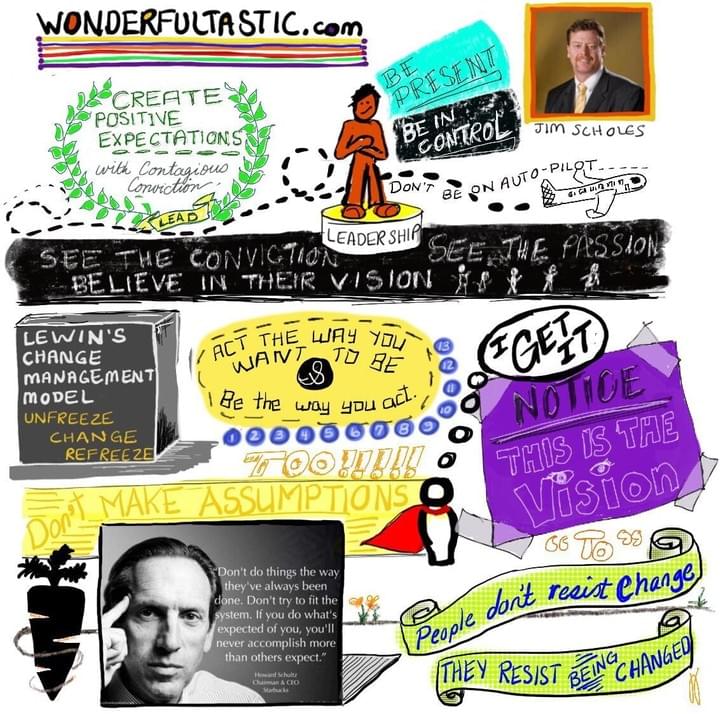 WONDERFULTASTIC.com
CREATE
POSITIVE
EXPECTATIONS
with Contagious
Conviction
LEAD
BE
PRESENT
BE IN
CONTROL
JIM SCHOLES
DON'T BE ON AUTO-PILOT
LEADERSHIP
SEE THE CONVICTION SEE THE PASSION
BELIEVE IN THEIR VISION
LEWIN'S
CHANGE
MANAGEMENT
MODEL
UNFREEZE
CHANGE
REFREEZE
ACT THE WAY YOU
WANT TO BE
Be the way you act.
1 2 3 4 5 6 7 8 9 10 11 12 13
I GET
IT
NOTICE
THIS IS THE
Vision
TOO!!!!!!
Don't MAKE ASSUMPTIONS
"Don't do things the way
they've always been
done. Don't try to fit the
system. If you do what's
expected of you, you'll
never accomplish more
than others expect."
Howard Schultz
Chairman & CEO
Starbucks
66 To 99
People don't resist change
THEY RESIST BEING CHANGED